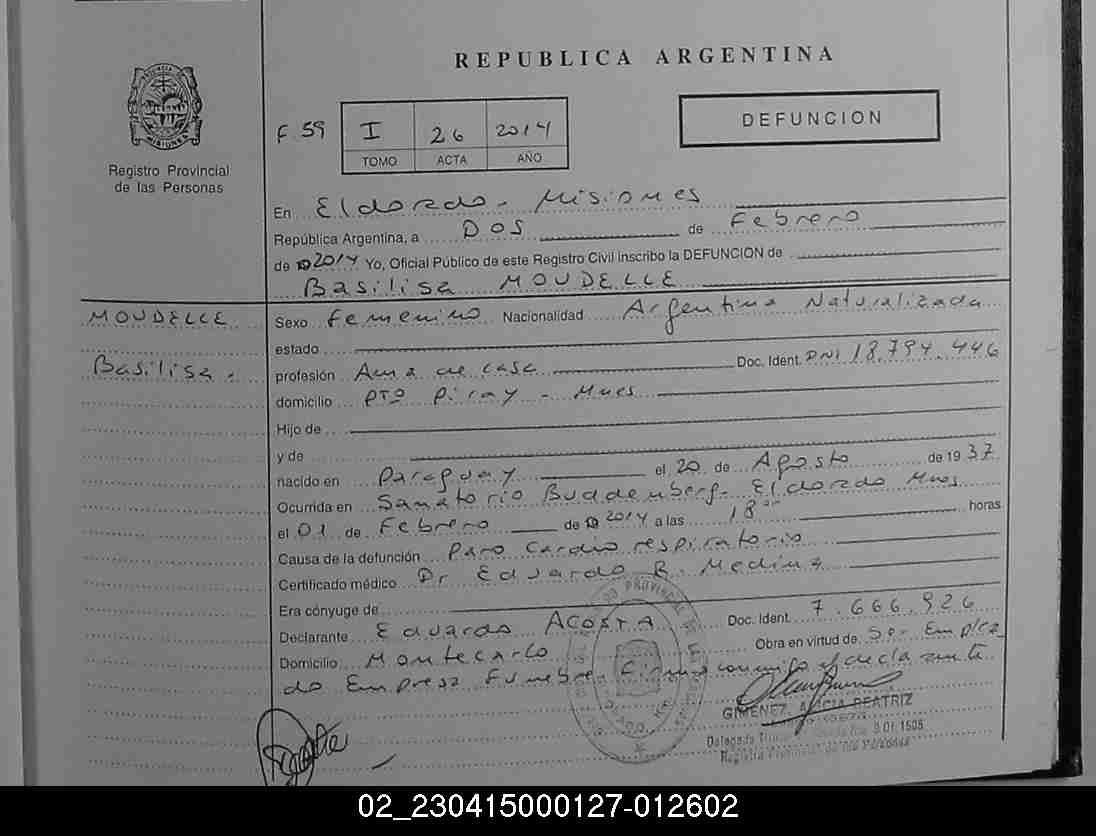 REPUBLICA ARGENTINA
DEFUNCION
F 59 I 26 2014
TOMO ACTA AÑO
MISIONES
Registro Provincial
de las Personas
En Eldorado - Misiones
República Argentina, a DOS de Febrero
de 2014 Yo, Oficial Público de este Registro Civil inscribo la DEFUNCION de
Basilisa MOUDELLE
MOUDELLE
Basilisa.
Sexo femenino Nacionalidad Argentina Naturalizada
estado
profesión Ama de casa Doc. Ident. DNI 18.794.446
domicilio Pto Piray - Mnes
Hijo de
y de
nacido en Paraguay el 20 de Agosto de 1937
Ocurrida en Sanatorio Buddenberg - Eldorado Mnes
el 01 de Febrero de 2014 a las 18 horas
Causa de la defunción Paro Cardio respiratorio
Certificado médico Dr Eduardo R. Medina
Era cónyuge de
Declarante Eduardo ACOSTA Doc. Ident. 7.666.926
Domicilio Montecarlo Obra en virtud de Ser Emplea
do Empresa Funebre. Firma conmigo el declarante
GIMENEZ, ALICIA BEATRIZ
Delegada
Registro Provincial de las Personas
02_230415000127-012602